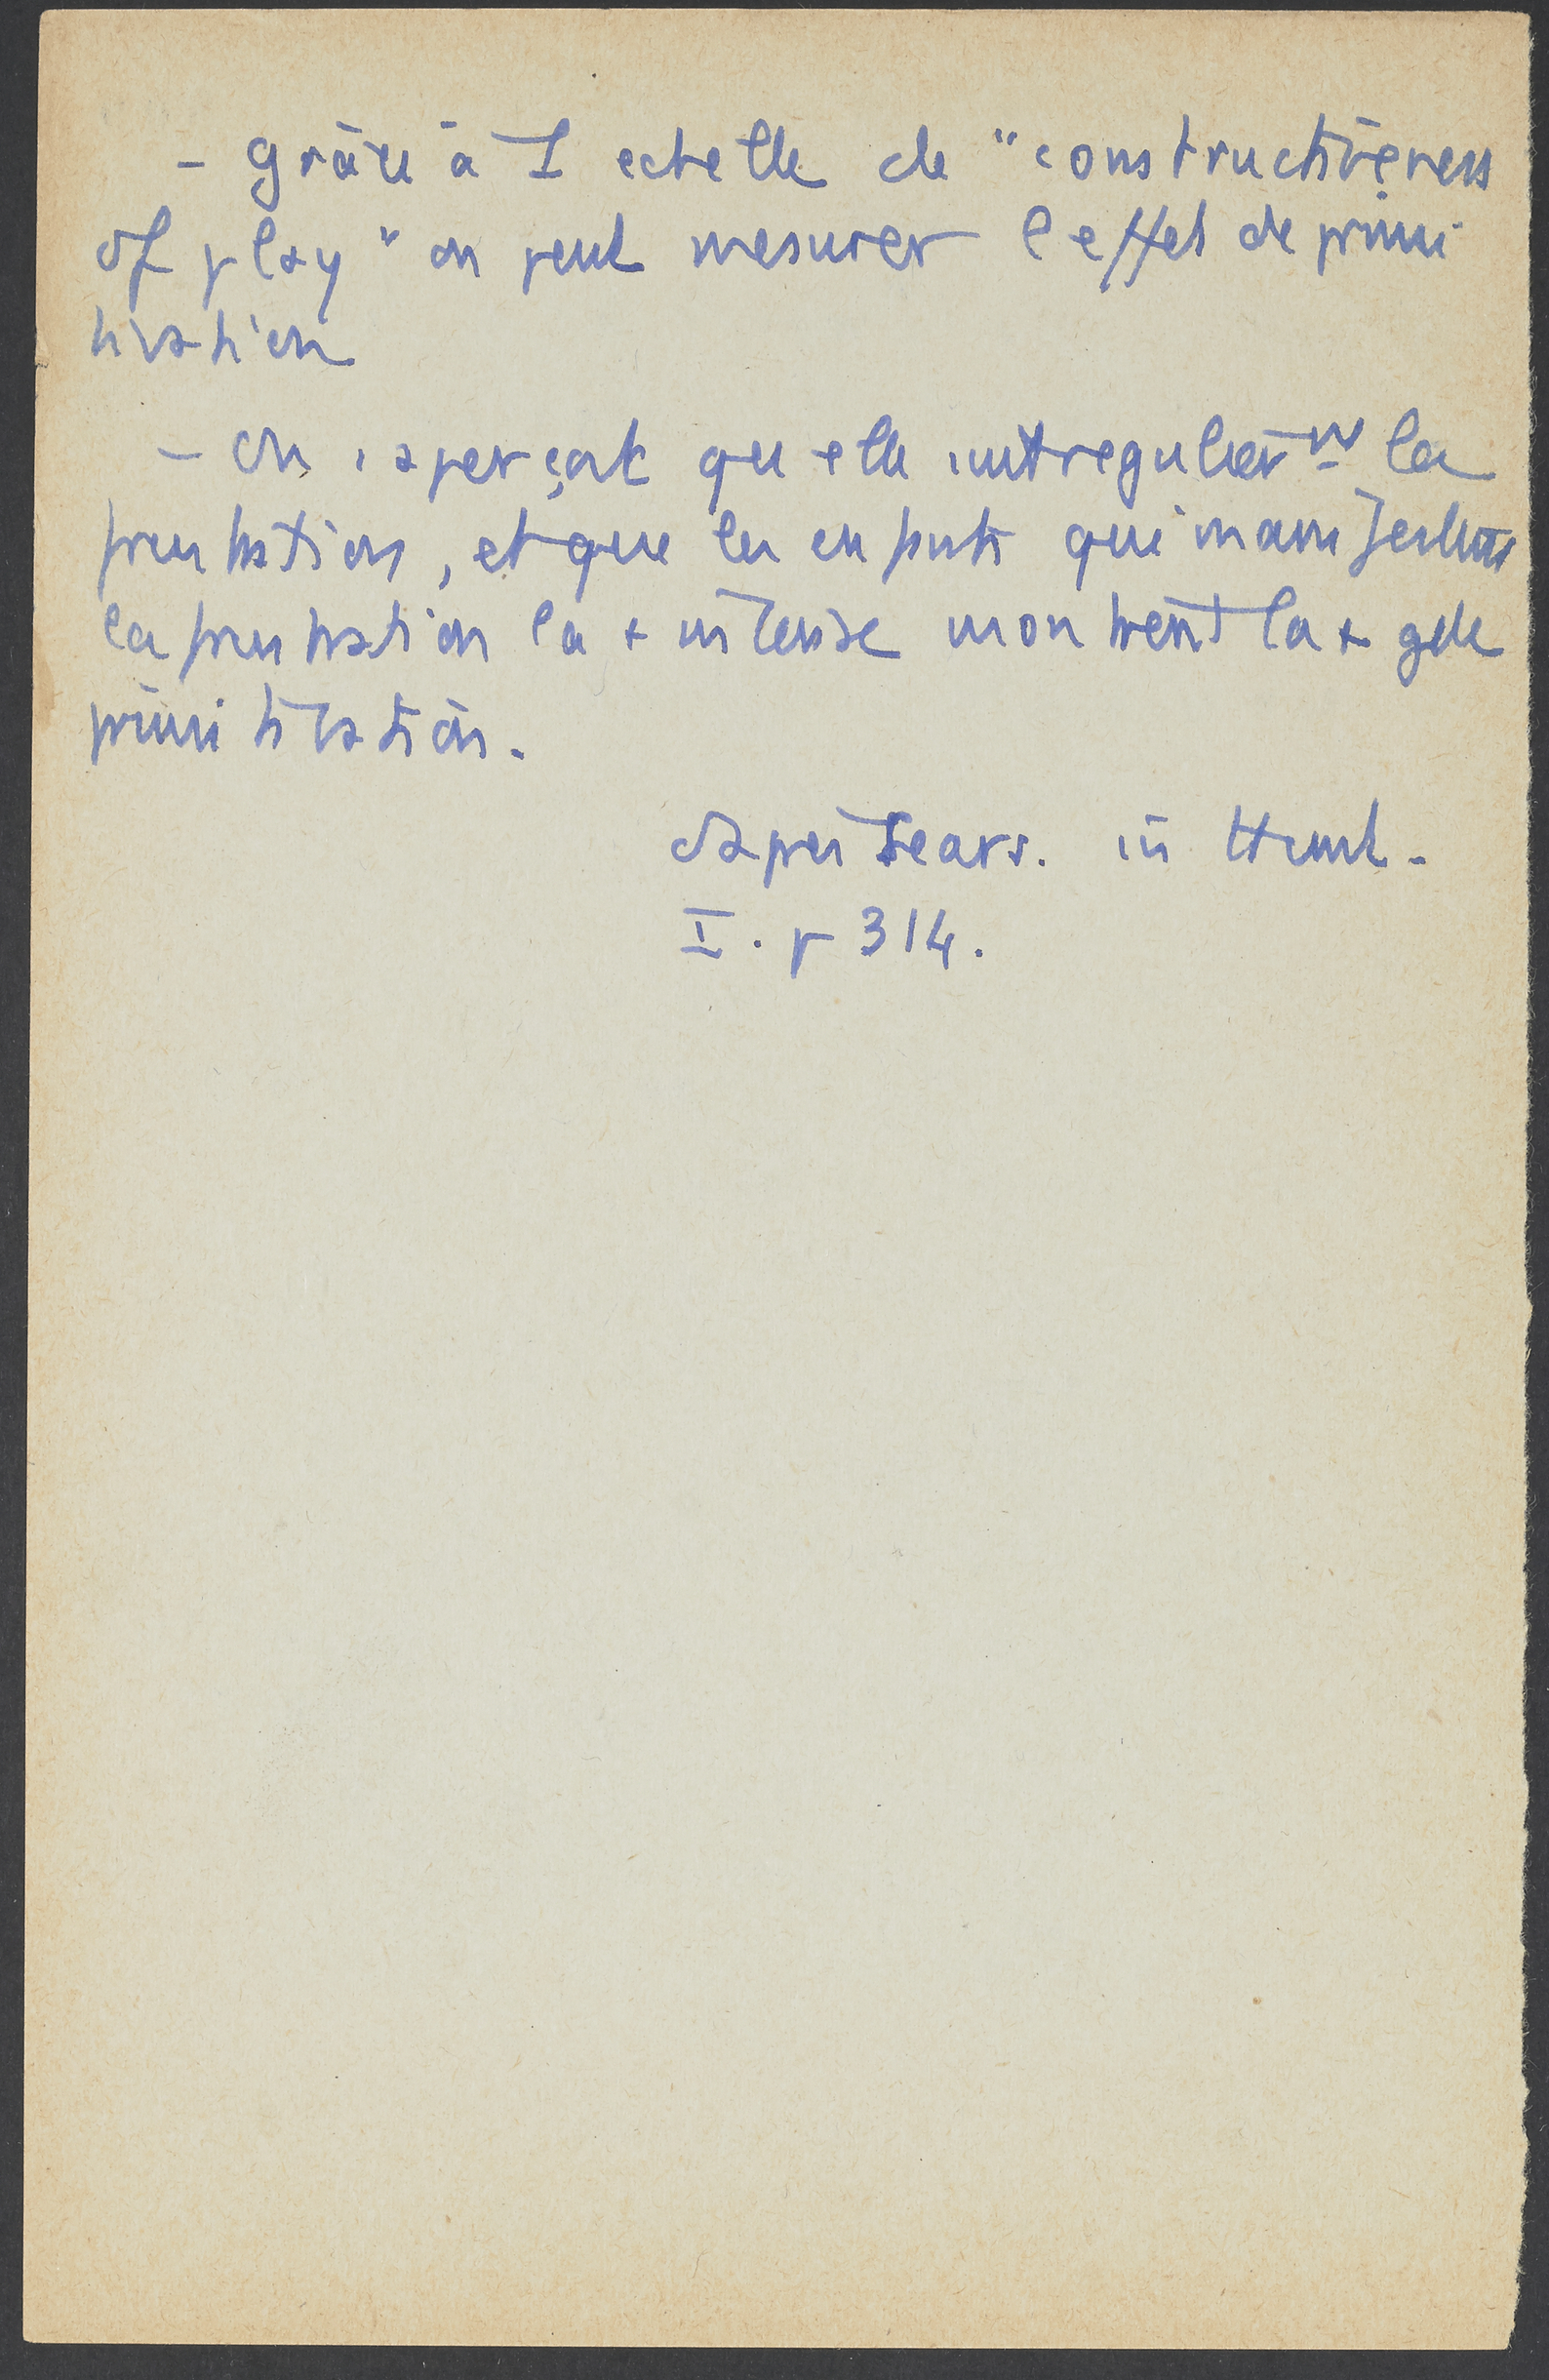 - Grâce à 1 echelle de "constructiveness
of play" on peut mesurer l effet de primi
tivation
- On s aperçoit qu elle suit regulièrt la
frustration, et que les enfants qui manifestent
la frustration la + intense montrent la + gde
primitivation.
d apres Sears. in Hunt.
I. p 314.